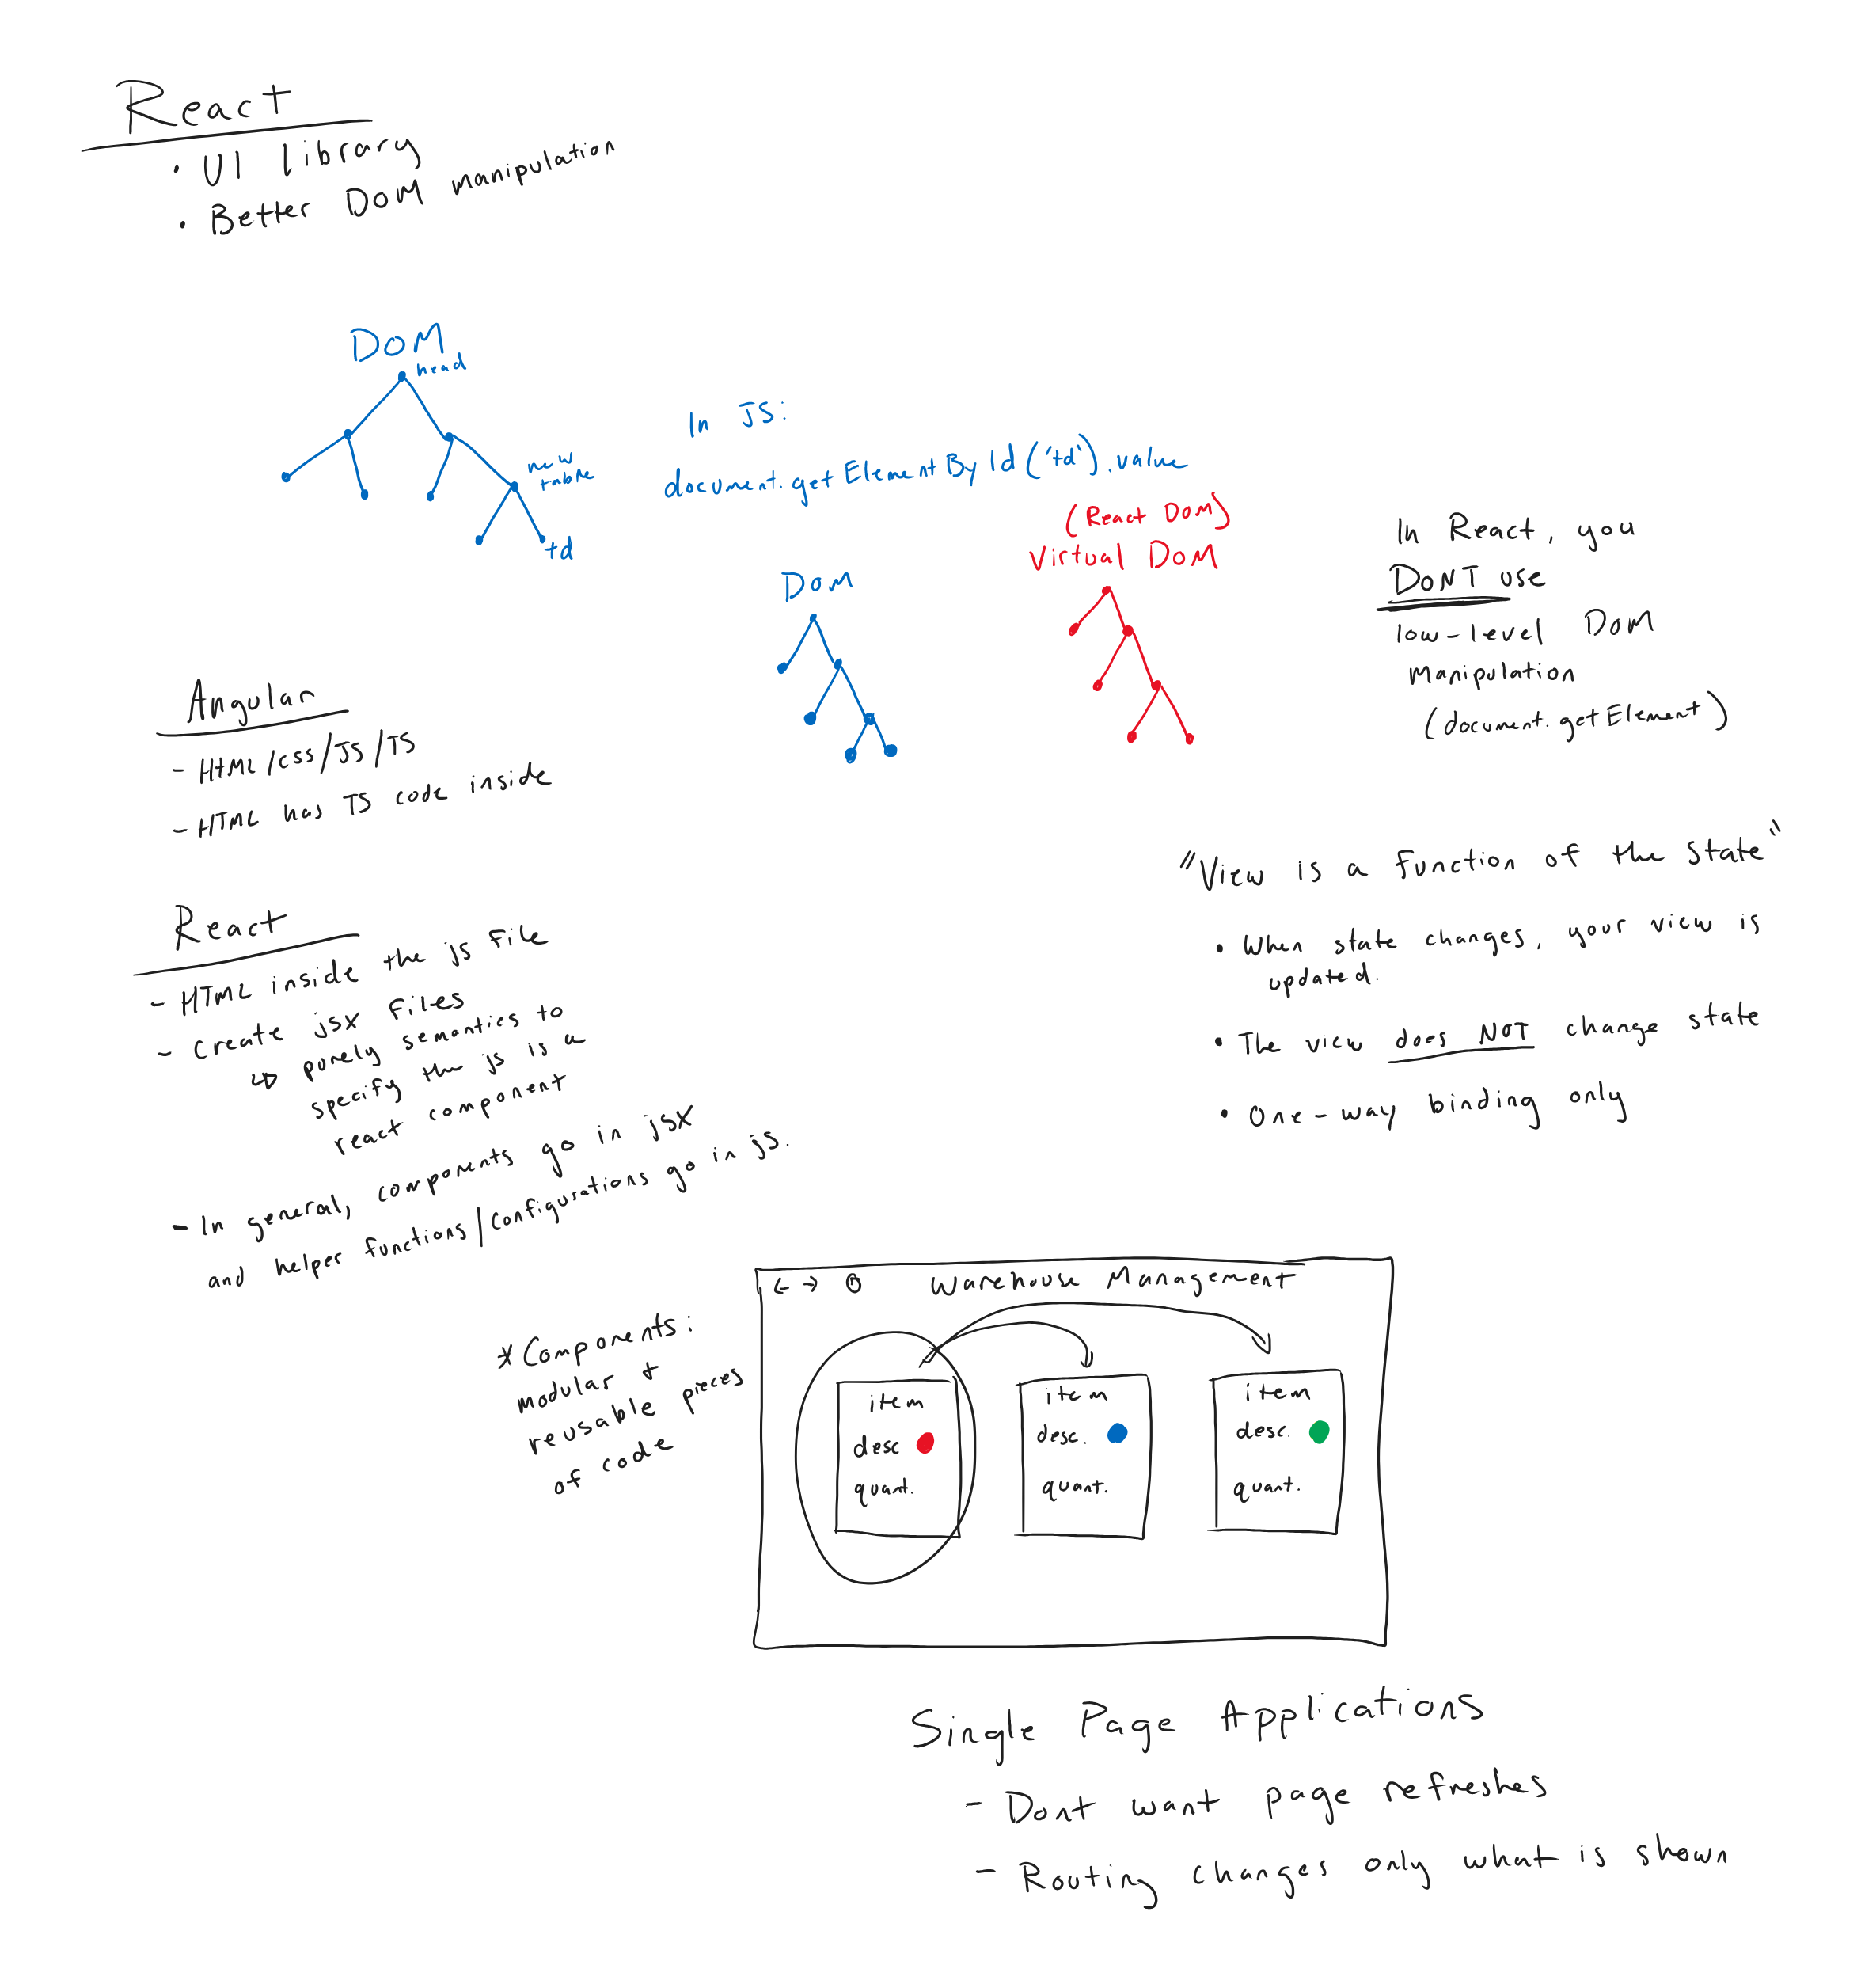 React
• UI library
• Better DOM manipulation
DOM
head
new
table
td
In JS:
document.getElementById('td').value
DOM
(React DOM)
Virtual DOM
In React, you
DONT use
low-level DOM
manipulation
(document.getElement)
Angular
- HTML/CSS/JS/TS
- HTML has TS code inside
React
- HTML inside the js file
- Create jsx files
↳ purely semantics to
specify the js is a
react component
- In general, components go in jsx
and helper functions/configurations go in js.
"View is a function of the state"
• When state changes, your view is
updated.
• The view does NOT change state
• One-way binding only
* Components:
modular +
reusable pieces
of code
← → Warehouse Management
item
desc
quant.
item
desc.
quant.
item
desc.
quant.
Single Page Applications
- Dont want page refreshes
- Routing changes only what is shown